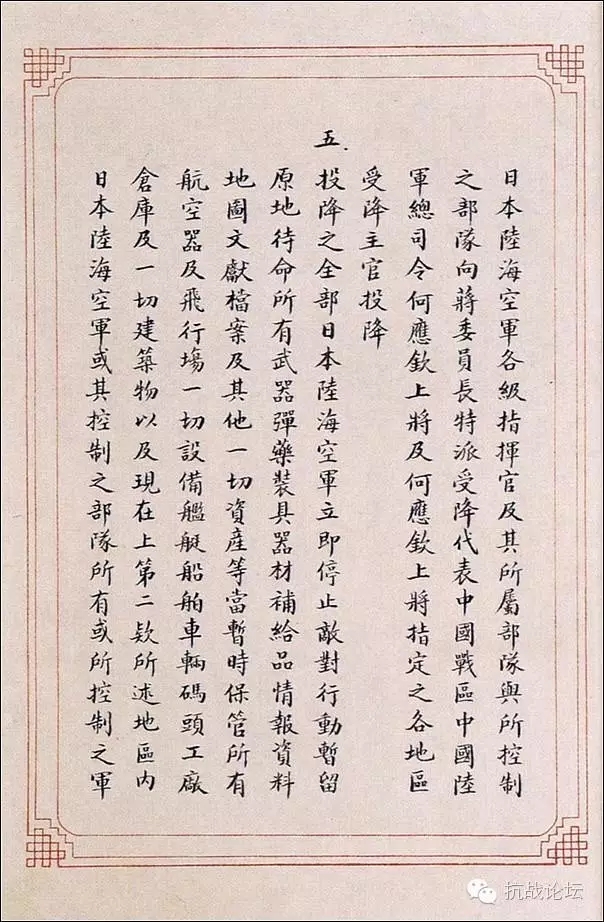 日本陸海空軍各級指揮官及其所屬部隊與所控制
之部隊向蔣委員長特派受降代表中國戰區中國陸
軍總司令何應欽上將及何應欽上將指定之各地區
受降主官投降
五.
投降之全部日本陸海空軍立即停止敵對行動暫留
原地待命所有武器彈藥裝具器材補給品情報資料
地圖文獻檔案及其他一切資產等當暫時保管所有
航空器及飛行場一切設備艦艇船舶車輛碼頭工廠
倉庫及一切建築物以及現在上第二欵所述地區内
日本陸海空軍或其控制之部隊所有或所控制之軍
抗战论坛